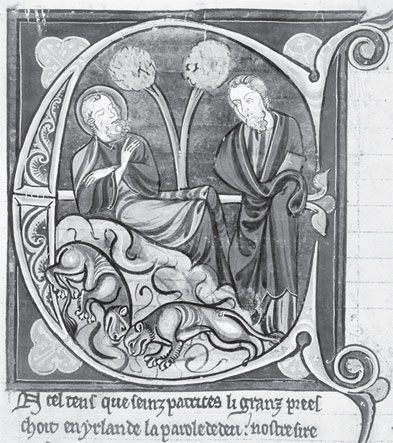 EN cel tens que seinz patrices li granz prees
choit en yrlande la parole de deu. nostre sire